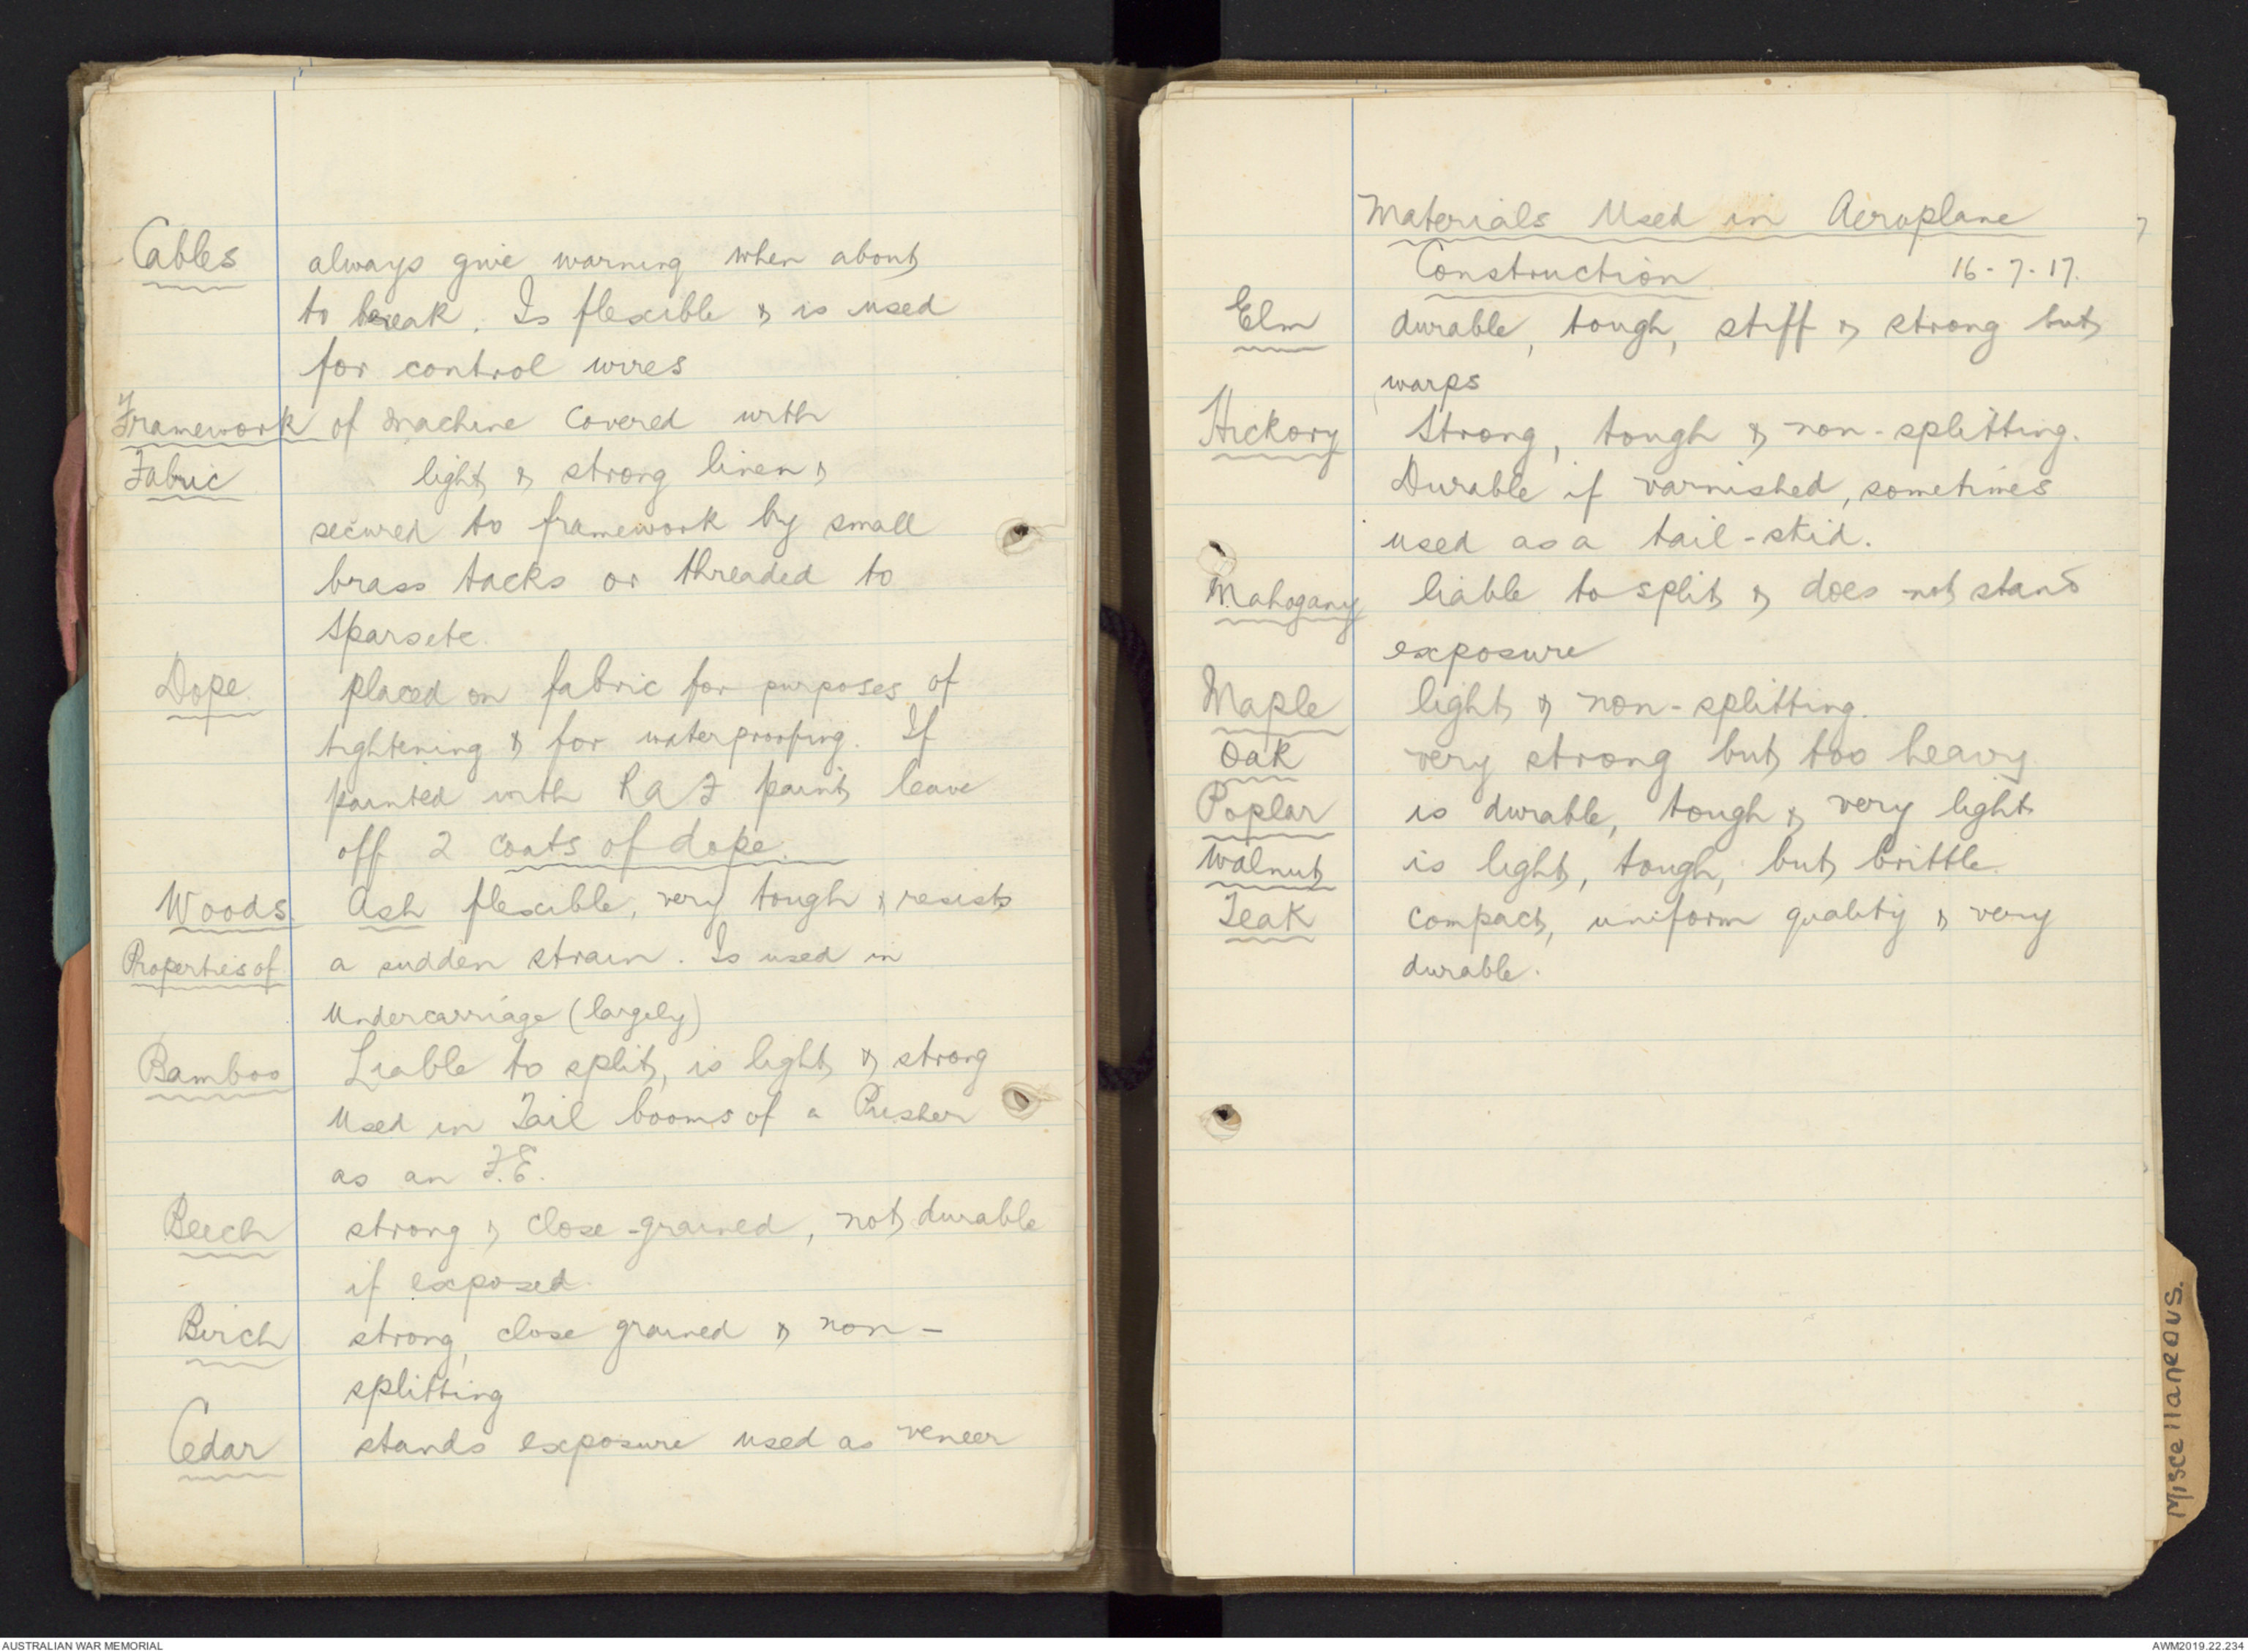 Cables always give warning when about
to break. Is flexible & is used
for control wires
Framework of machine covered with
Fabric light & strong linen &
secured to framework by small
brass tacks or threaded to
spars etc.
Dope. placed on fabric for purposes of
tightening & for waterproofing. If
painted with RAF paint leave
off 2 coats of dope.
Woods. Ash flexible, very tough & resists
Properties of a sudden strain. Is used in
Undercarriage (largely)
Bamboo Liable to split, is light & strong
Used in Tail booms of a Pusher
as an F.E.
Beech strong & close-grained, not durable
if exposed.
Birch strong, close grained & non-
splitting
Cedar stands exposure used as veneer
Materials Used in Aeroplane
Construction 16-7-17.
Elm durable, tough, stiff & strong but
warps
Hickory Strong, tough & non-splitting.
Durable if varnished, sometimes
used as a tail-skid.
Mahogany liable to split & does not stand
exposure
Maple light & non-splitting.
Oak very strong but too heavy
Poplar is durable, tough & very light
Walnut is light, tough, but brittle.
Teak compact, uniform quality & very
durable.
Miscellaneous.
AUSTRALIAN WAR MEMORIAL
AWM2019.22.234